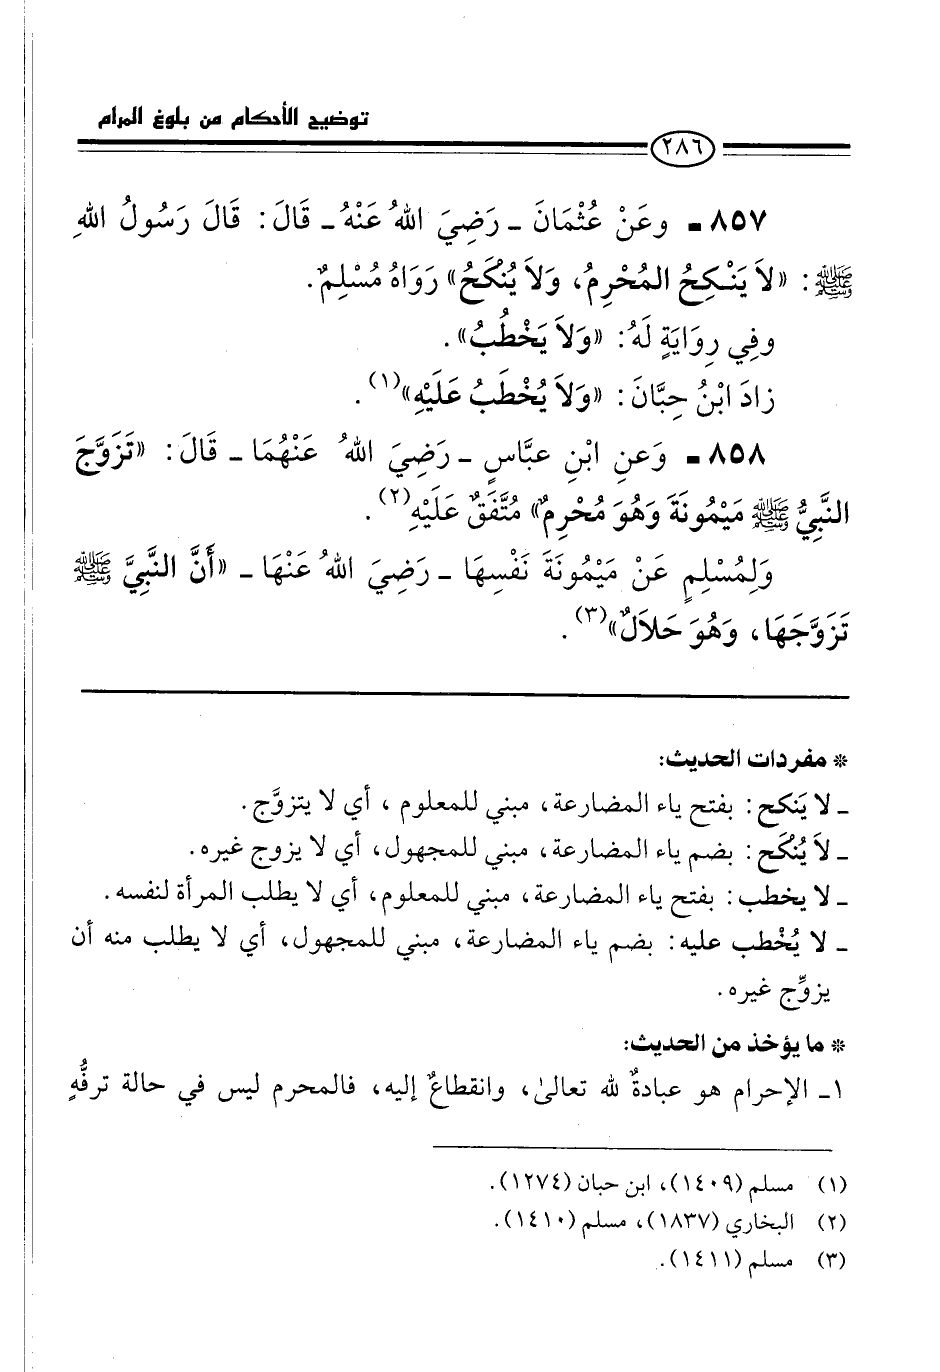 توضيح الأحكام من بلوغ المرام
٢٨٦
٨٥٧ - وعَنْ عُثْمَانَ - رَضِيَ اللهُ عَنْهُ - قَالَ: قَالَ رَسُولُ اللهِ
ﷺ: «لاَ يَنْكِحُ المُحْرِمُ، وَلاَ يُنْكَحُ» رَوَاهُ مُسْلِمٌ.
وفِي رِوَايَةٍ لَهُ: «وَلاَ يَخْطُبُ».
زادَ ابْنُ حِبَّانَ: «وَلاَ يُخْطَبُ عَلَيْهِ»(١).
٨٥٨ - وَعَنِ ابْنِ عبَّاسٍ - رَضِيَ اللهُ عَنْهُمَا - قَالَ: «تَزَوَّجَ
النَّبِيُّ ﷺ مَيْمُونَةَ وَهُوَ مُحْرِمٌ» مُتَّفَقٌ عَلَيْهِ(٢).
وَلِمُسْلِمٍ عَنْ مَيْمُونَةَ نَفْسِهَا - رَضِيَ اللهُ عَنْهَا - «أَنَّ النَّبِيَّ ﷺ
تَزَوَّجَهَا، وَهُوَ حَلاَلٌ»(٣).
* مفردات الحديث:
- لا يَنكح: بفتح ياء المضارعة، مبني للمعلوم، أي لا يتزوَّج.
- لاَ يُنْكَح: بضم ياء المضارعة، مبني للمجهول، أي لا يزوج غيره.
- لا يخطب: بفتح ياء المضارعة، مبني للمعلوم، أي لا يطلب المرأة لنفسه.
- لا يُخْطب عليه: بضم ياء المضارعة، مبني للمجهول، أي لا يطلب منه أن
يزوِّج غيره.
* ما يؤخذ من الحديث:
١- الإحرام هو عبادةٌ لله تعالىٰ، وانقطاعٌ إليه، فالمحرم ليس في حالة ترفُّهٍ
(١) مسلم (١٤٠٩)، ابن حبان (١٢٧٤).
(٢) البخاري (١٨٣٧)، مسلم (١٤١٠).
(٣) مسلم (١٤١١).